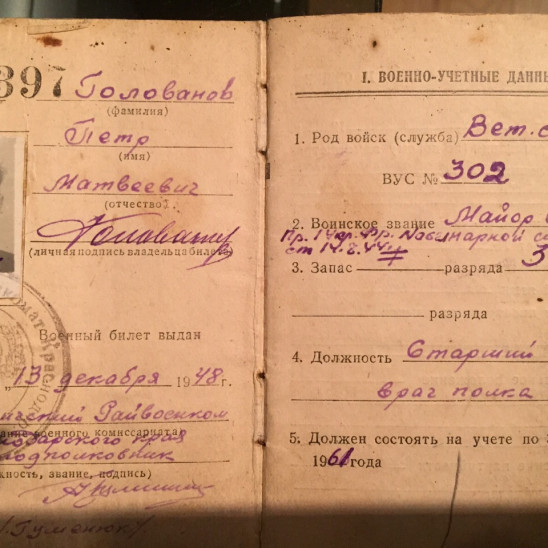 897 Голованов
(фамилия)
Петр
(имя)
Матвеевич
(отчество)
(личная подпись владельца билета)
Военный билет выдан
„13 декабря 1948г.
Райвоенком
военного комиссариата)
края
подполковник
звание, подпись)
Гуменюк
I. ВОЕННО-УЧЕТНЫЕ ДАНН
1. Род войск (служба) Вет. с
ВУС № 302
2. Воинское звание Майор
Пр. 1 Укр. фр.
3. Запас разряда 3
разряда
4. Должность Старший
врач полка
5. Должен состоять на учете по
1961 года